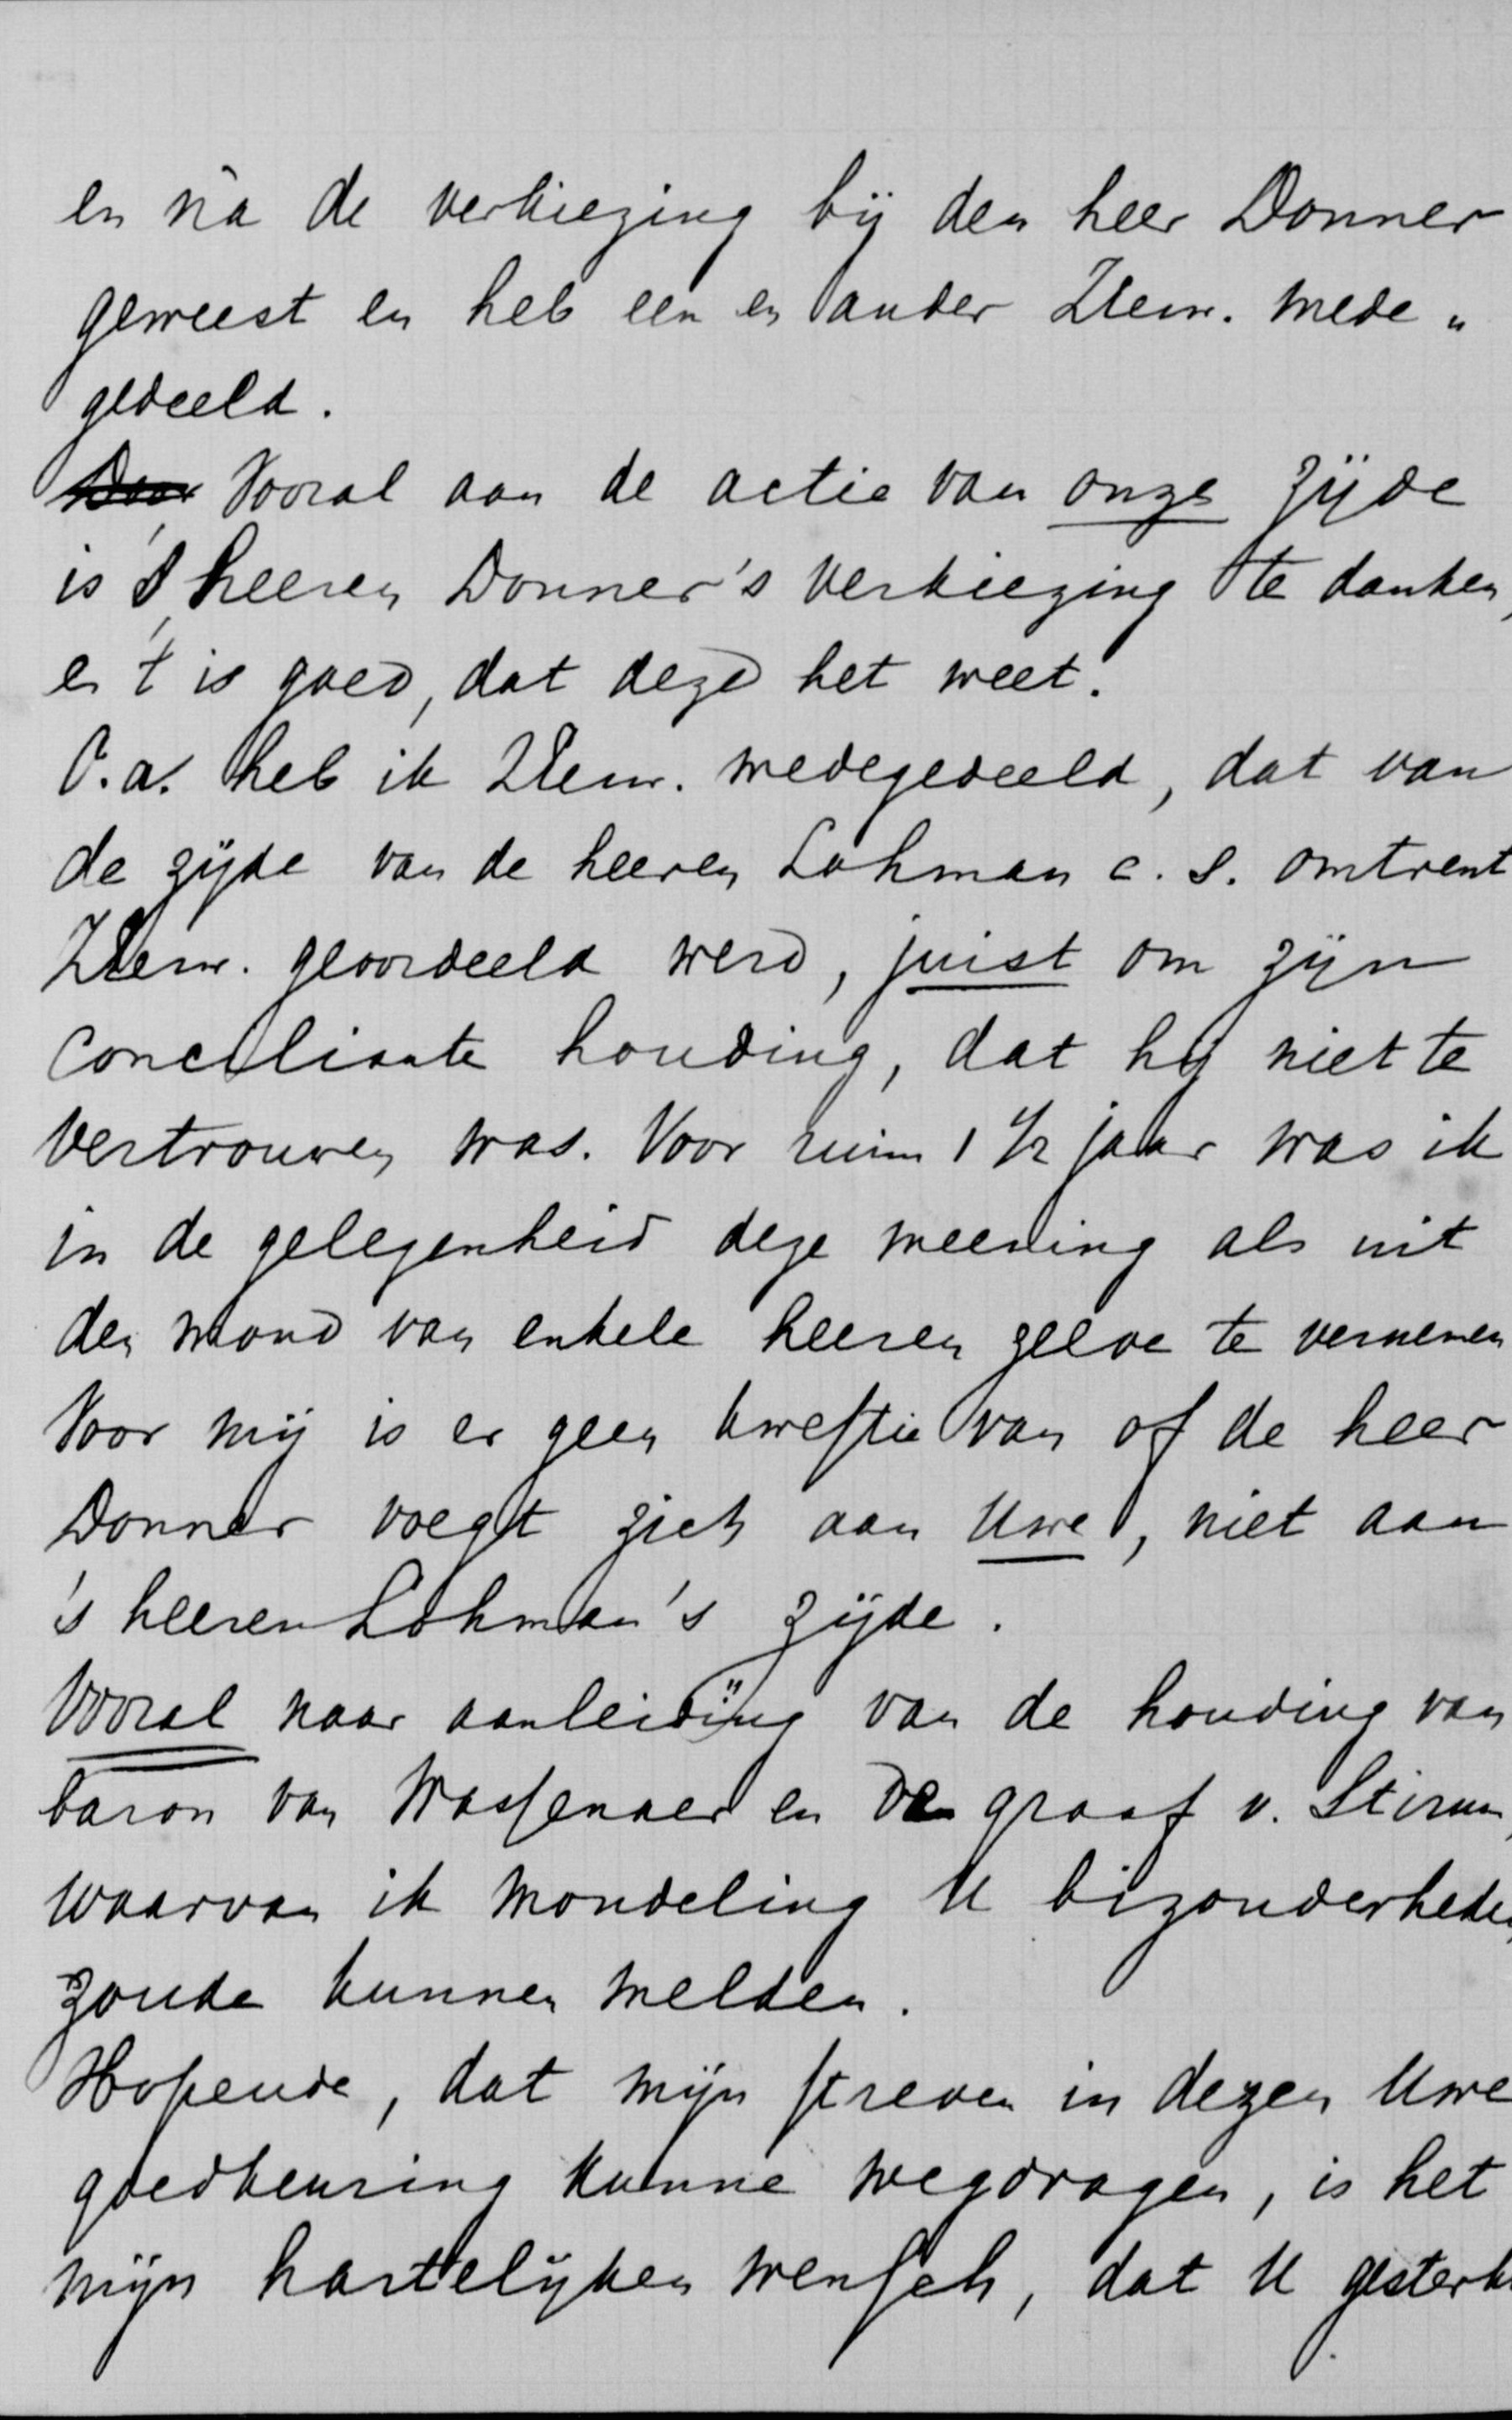 en ná de verkiezing bij den heer Donner
geweest en heb een en ander ZEew. mede„
gedeeld.
Door Vooral aan de actie van onze zijde
is 's heeren Donner's verkiezing te danken,
en 't is goed, dat deze het weet.
O.a. heb ik ZEew. medegedeeld, dat van
de zijde van de heeren Lohman c.s. omtrent
ZEew. geoordeeld werd, juist om zijn
conciliante houding, dat hij niet te
vertrouwen was. Voor ruim 1 1/2 jaar was ik
in de gelegenheid deze meening als uit
den mond van enkele heeren zelve te vernemen
Voor mij is er geen kwestie van of de heer
Donner voegt zich aan Uwe, niet aan
's heeren Lohman's zijde.
Vooral naar aanleiding van de houding van
baron van Wassenaer en den graaf v. Stirum,
waarvan ik mondeling U bizonderheden
zoude kunnen melden.
Hopende, dat mijn streven in dezen Uwe
goedkeuring kunne wegdragen, is het
mijn hartelijken wensch, dat U gesterkt